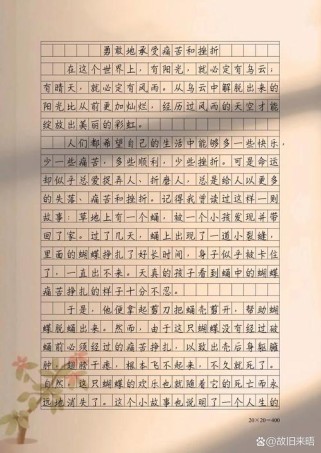 勇敢地承受痛苦和挫折
在这个世界上，有阳光，就必定有乌云，
有晴天，就必定有风雨。从乌云中解脱出来的
阳光比从前更加灿烂，经历过风雨的天空才能
绽放出美丽的彩虹。
人们都希望自己的生活中能够多一些快乐，
少一些痛苦，多些顺利，少些挫折。可是命运
却似乎总爱捉弄人、折磨人，总是给人以更多
的失落、痛苦和挫折。记得我曾读过这样一则
故事：草地上有一个蛹，被一个小孩发现并带
回了家。过了几天，蛹上出现了一道小裂缝，
里面的蝴蝶挣扎了好长时间，身子似乎被卡住
了，一直出不来。天真的孩子看到蛹中的蝴蝶
痛苦挣扎的样子十分不忍。
于是，他便拿起剪刀把蛹壳剪开，帮助蝴
蝶脱蛹出来。然而，由于这只蝴蝶没有经过破
蛹前必须经过的痛苦挣扎，以致出壳后身躯臃
肿，翅膀干瘪，根本飞不起来，不久就死了。
自然，这只蝴蝶的欢乐也就随着它的死亡而永
远地消失了。这个小故事也说明了一个人生的
20×20=400
@故旧来唔